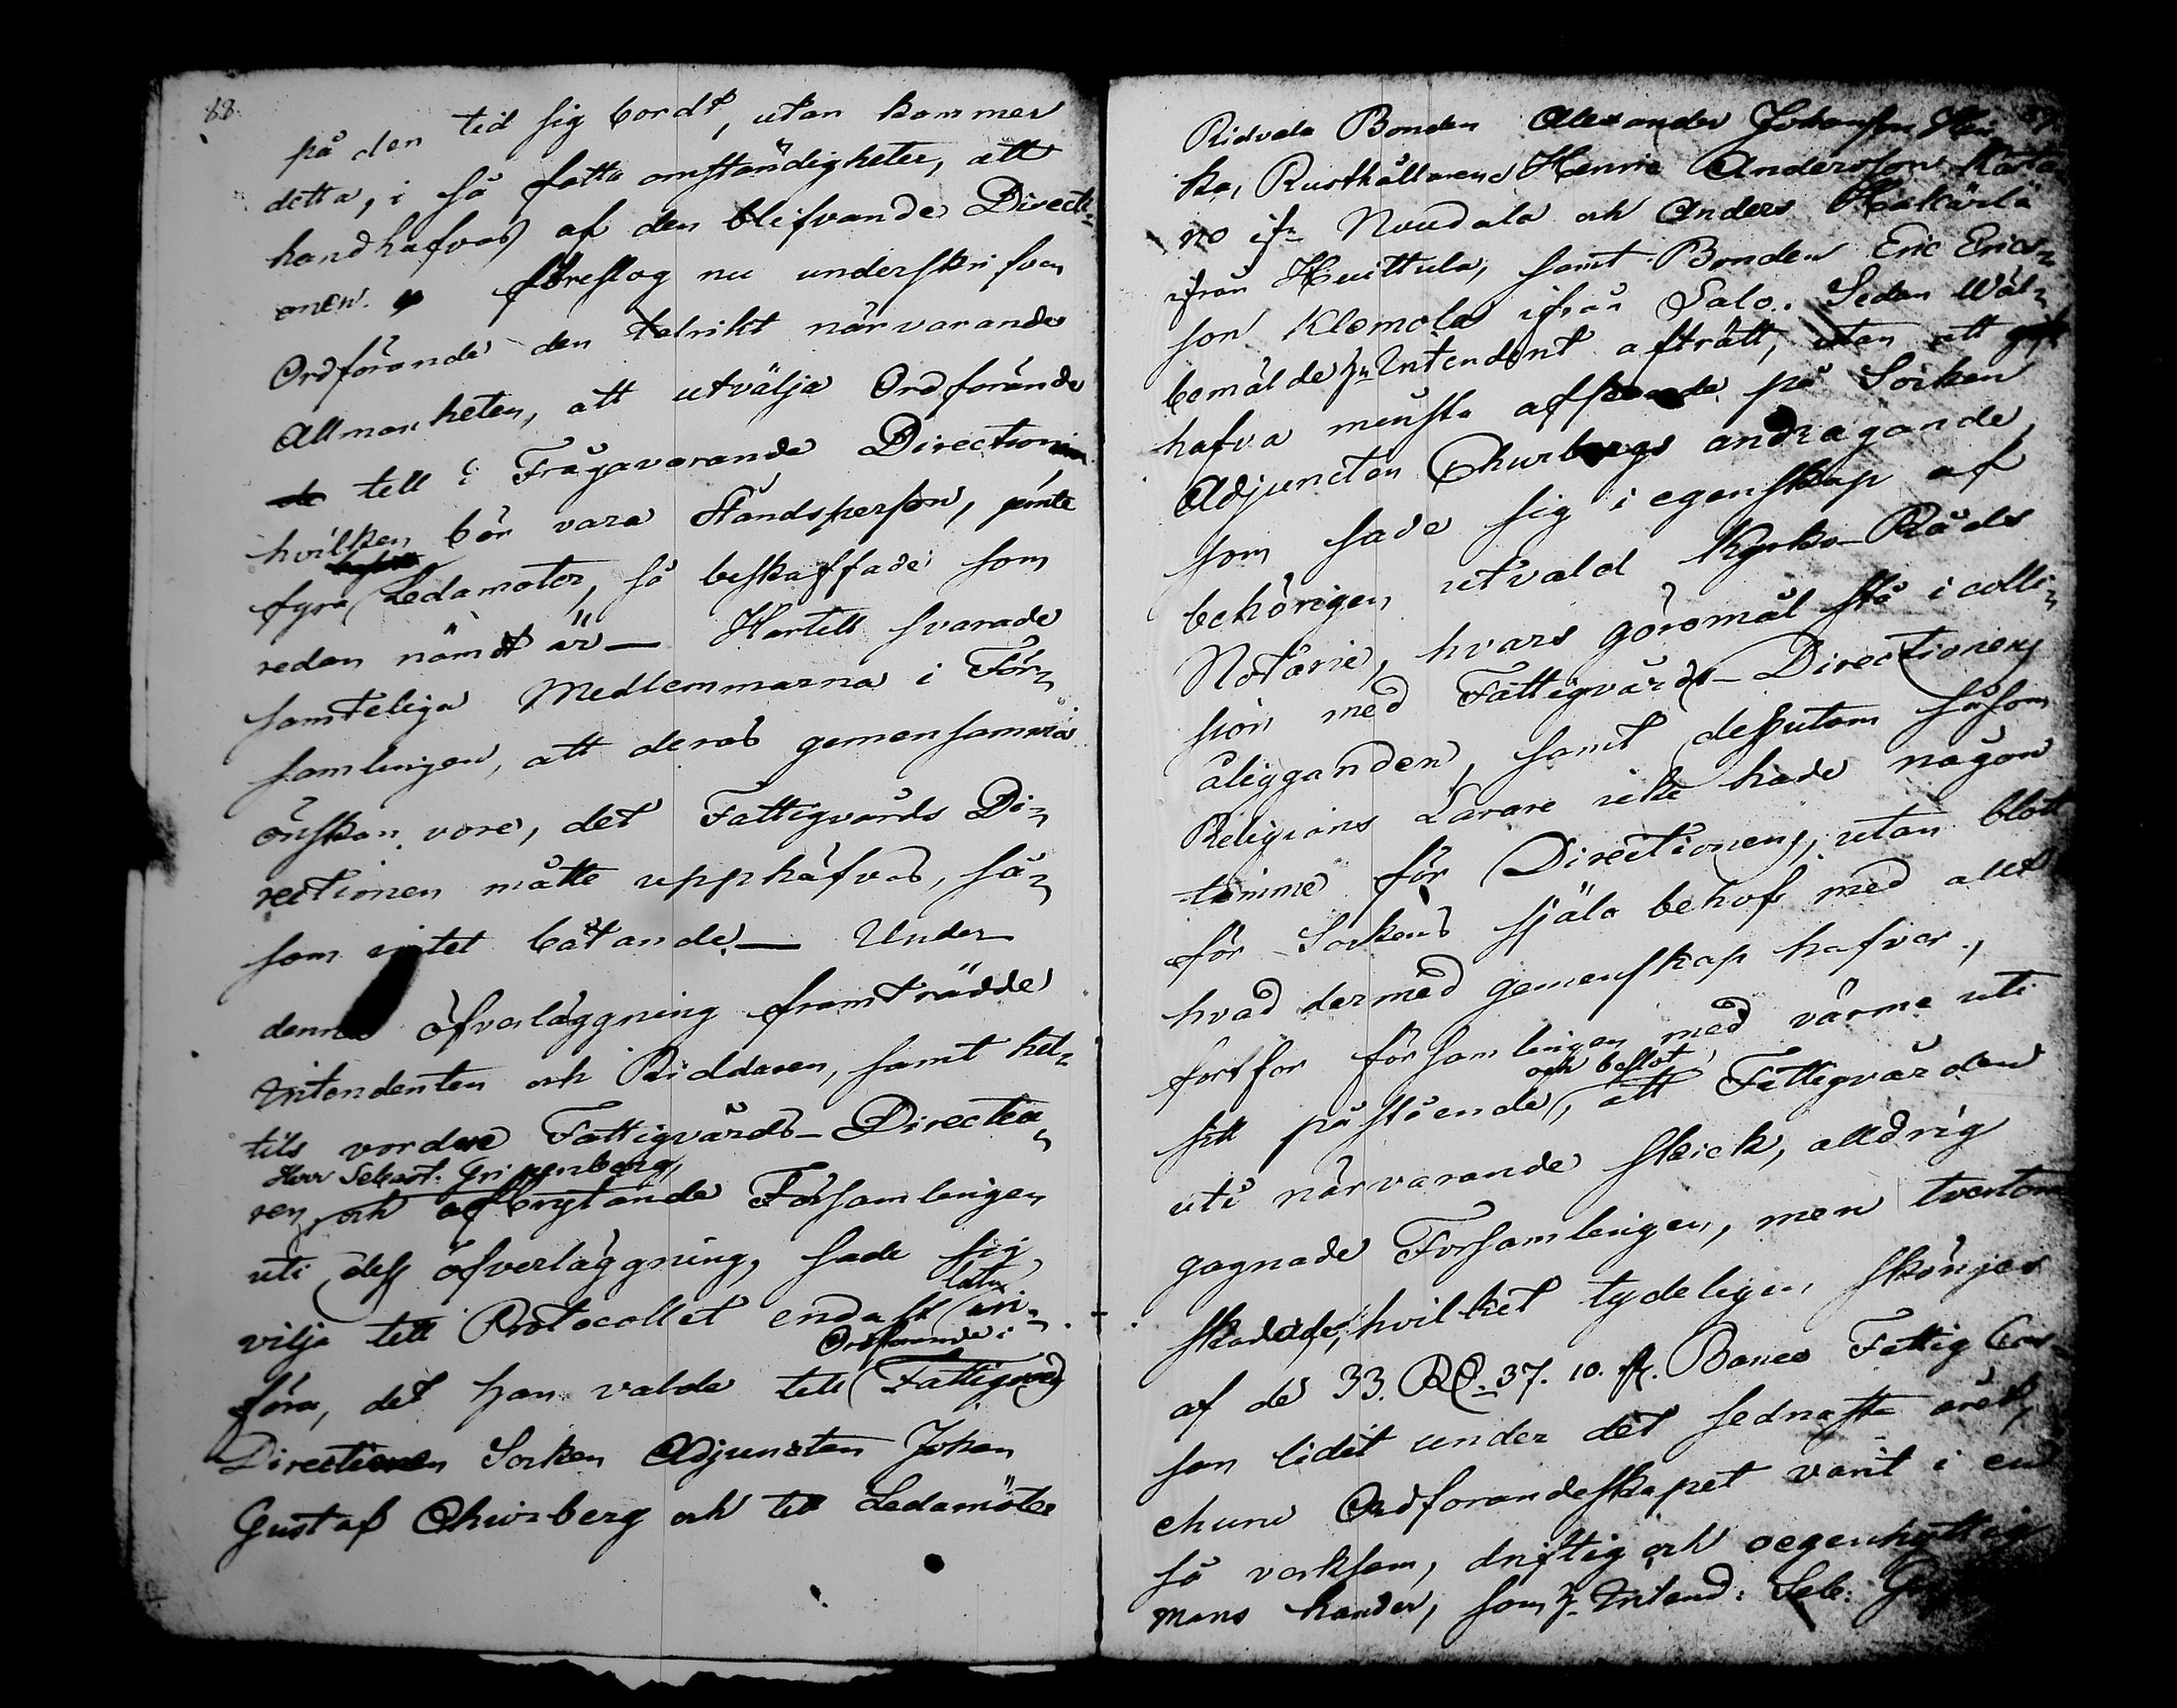 88.
på den tid sig bordt, utan kommer
detta, i så fatta omständigheter, att
handhafvas af den blifvande Directi-
onen. föreslog nu underskrifven
Ordförande den talrikt närvarande
Allmänheten, att utvälja Ordförande
till i Frågavarande Direction
hvilken bör vara Ståndsperson, jemte
fyra Ledamoter, så beskaffade som
redan nämdt är — Hartill svarade
samtelige Medlemmarna i För-
samlingen, att deras gemensamma
önskan vore, det Fattigvårds Di-
rectionen måtte upphäfvas, så-
som intet båtande. — Under
denna öfverläggning framträdde
Intendenten och Riddaren, samt hit-
tils vordne Fattigvårds-Directeu-
Herr Sebast. Gripenberg,
ren, och afbrytande Församlingen
uti dess öfverläggning, sade sig
vilja till Protocollet endast låta in-
föra, det han valde till Ordförande i Fattigvård
Directionen Socken Adjuncten Johan
Gustaf Churberg och till Ledamöter
Ridvala Bonden Alexander Johansson
ka, Rusthållarene Henric Andersson
no ifn Nuudala och Anders Häkärlä
ifrån Huittula, samt Bonden Eric Erics-
son Klemola ifrån Salo. Sedan Wäl-
bemälde Hr Intendent afträtt, utan att
hafva minsta afseende på Socken
Adjuncten Churbergs andragande,
som sade sig i egenskap af
behörigen utvald Kyrko-Råds
Notarie, hvars göromål stå i colli-
sion med Fattigvårds-Directionens
åligganden, samt dessutom såsom
Religions Lärare icke hade någon
timme för Directionens, utan blott
för Sockens själa behof med allt
hvad dermed gemenskap hafver.,
fortfor församlingen med värme uti
sitt påstående, och beslöt, att Fattigvården
uti närvarande skick, alldrig
gagnade Församlingen, men tvertom
skadade, hvilket tydeligen skönjes
af de 33. RD. 37. 10. rf. Banco Fattig Cas-
san lidit under det sednaste året,
ehuru Ordförandeskapet varit i en
så verksam, driftig och oegennyttig
mans händer, som Hr Intend: Seb: